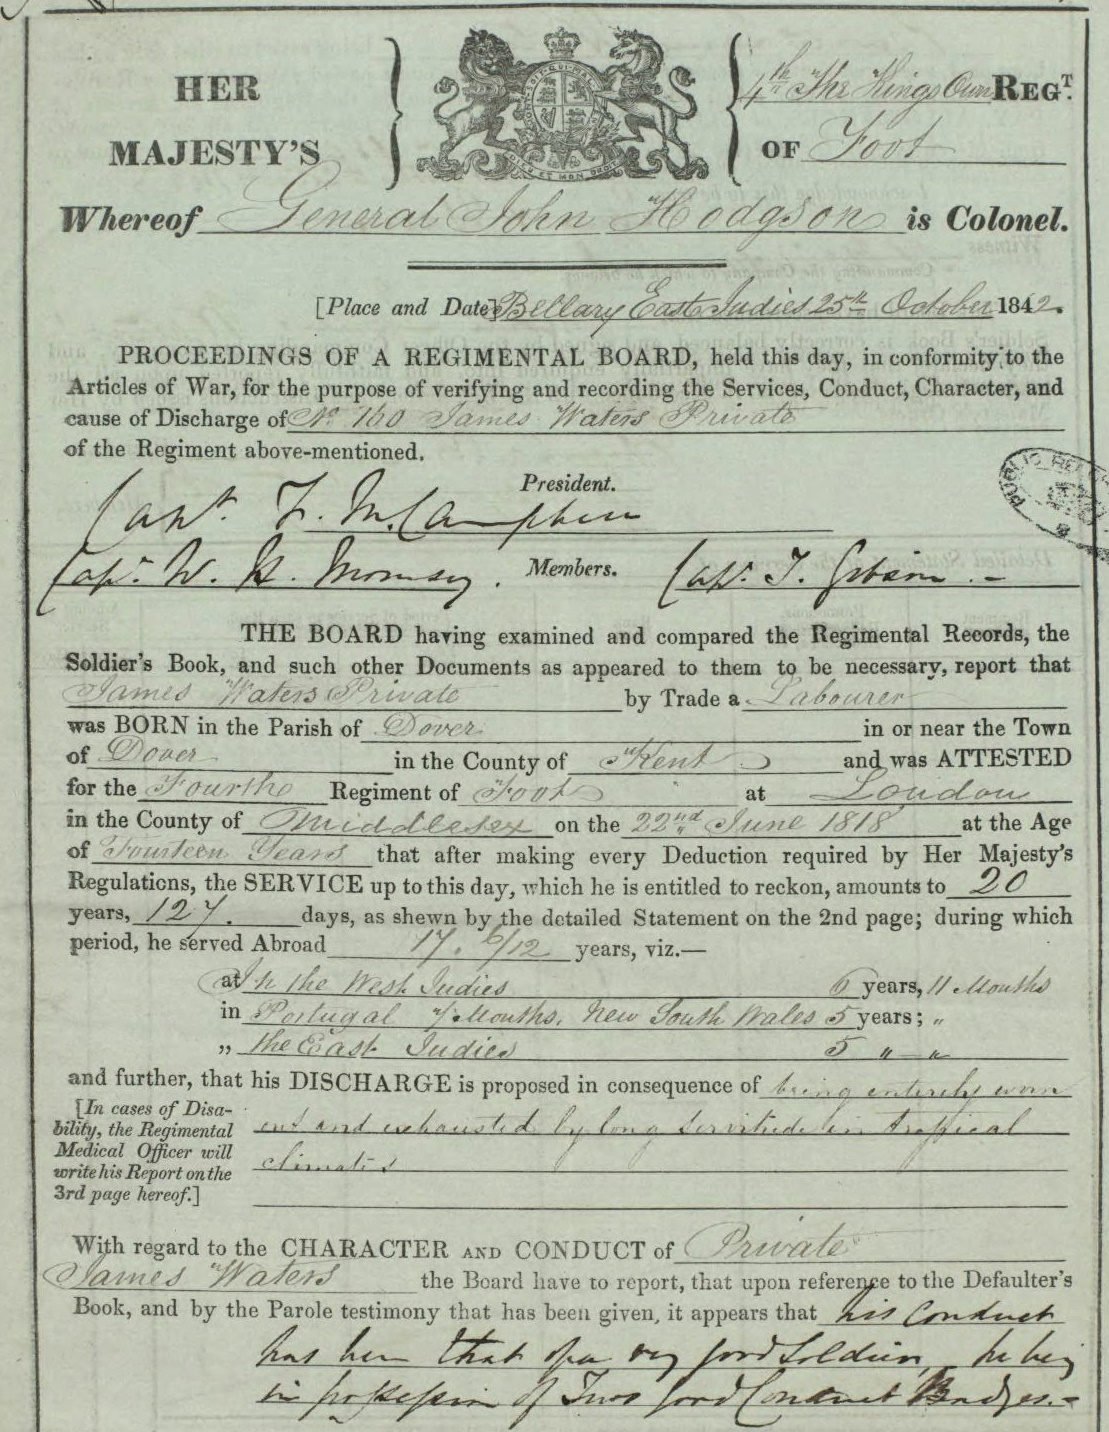 HER MAJESTY'S
4th The Kings Own REGT.
OF Foot
Whereof General John Hodgson is Colonel.
[Place and Date] Bellary East Indies 25th October 1842.
PROCEEDINGS OF A REGIMENTAL BOARD, held this day, in conformity to the
Articles of War, for the purpose of verifying and recording the Services, Conduct, Character, and
cause of Discharge of No 160 James Waters Private
of the Regiment above-mentioned.
President.
Capt.
Capt. W. Members. Capt. T. Gibson
PUBLIC
THE BOARD having examined and compared the Regimental Records, the
Soldier's Book, and such other Documents as appeared to them to be necessary, report that
James Waters Private by Trade a Labourer
was BORN in the Parish of Dover in or near the Town
of Dover in the County of Kent and was ATTESTED
for the Fourth Regiment of Foot at London
in the County of Middlesex on the 22nd June 1818 at the Age
of Fourteen Years that after making every Deduction required by Her Majesty's
Regulations, the SERVICE up to this day, which he is entitled to reckon, amounts to 20
years, 127. days, as shewn by the detailed Statement on the 2nd page; during which
period, he served Abroad 17. 6/12 years, viz.—
at In the West Indies 6 years, 11 Months
in Portugal 7 Months. New South Wales 5 years; "
„ the East Indies 5 " — "
and further, that his DISCHARGE is proposed in consequence of being entirely worn
[In cases of Disability, the Regimental Medical Officer will write his Report on the 3rd page hereof.]
out and exhausted by long servitude in tropical
climates
With regard to the CHARACTER AND CONDUCT of Private
James Waters the Board have to report, that upon reference to the Defaulter's
Book, and by the Parole testimony that has been given, it appears that his Conduct
has been that of a very good Soldier, he being
in possession of Two good Conduct Badges.-